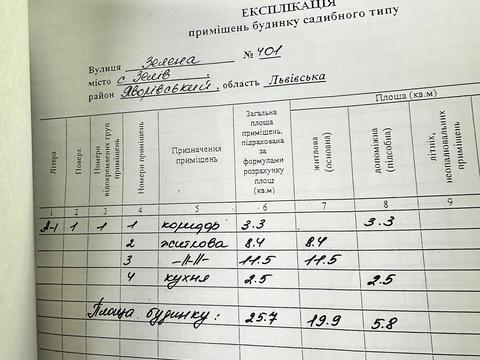 ЕКСПЛІКАЦІЯ
приміщень будинку садибного типу
Вулиця Зелена № 401
місто с Зелів,
район Яворівський, область Львівська
Літера
Поверх
Номери відокремлених груп приміщень
Номери приміщень
Призначення приміщень
Загальна площа приміщень, підрахована за формулами розрахунку площ (кв.м)
Площа (кв.м)
житлова (основна)
допоміжна (підсобна)
літніх, неопалювальних приміщень
1 2 3 4 5 6 7 8 9
А-І 1 1 1 коридор 3.3 3.3
2 житлова 8.4 8.4
3 -||-||- 11.5 11.5
4 кухня 2.5 2.5
Площа будинку: 25.7 19.9 5.8